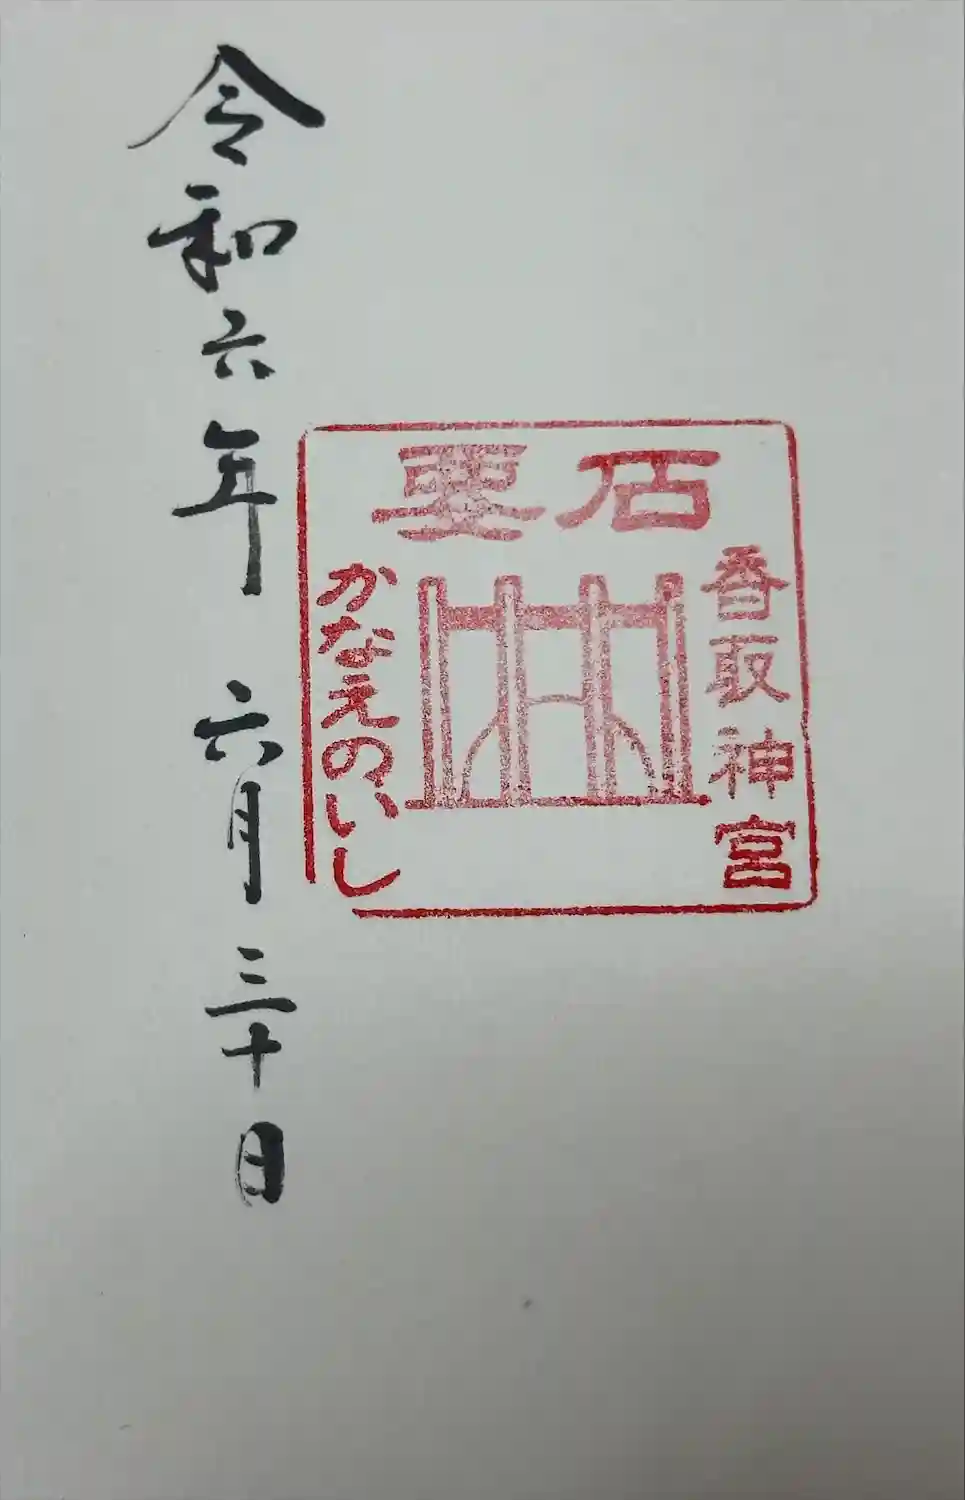 香取神宮
要石
かなえのいし
令和六年 六月 三十日